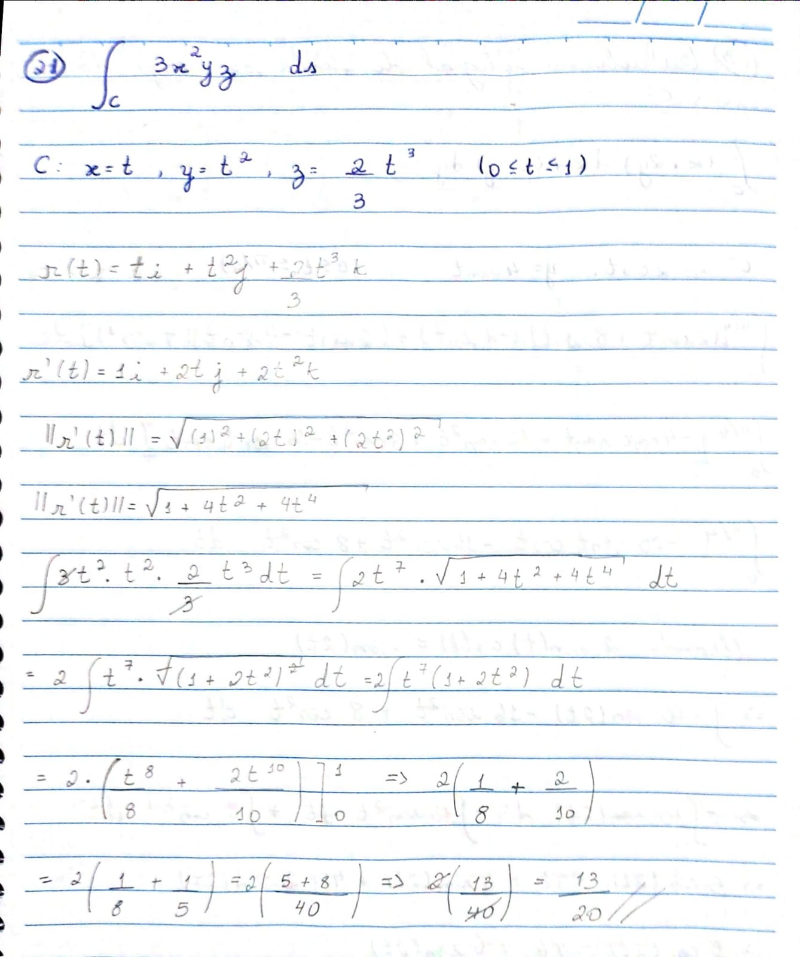 21) ∫_C 3x²yz ds
C: x=t , y=t² , z= 2/3 t³ (0≤t≤1)
r(t)= ti + t²j + 2t³/3 k
r'(t)=1i +2tj +2t²k
||r'(t)|| = √((1)²+(2t)²+(2t²)²)
||r'(t)||= √(1+4t²+4t⁴)
∫3t²·t²· 2/3 t³dt = ∫2t⁷ · √(1+4t²+4t⁴) dt
= 2 ∫t⁷·√((1+2t²)²) dt =2∫t⁷(1+2t²) dt
= 2·(t⁸/8 + 2t¹⁰/10)]₀¹ => 2(1/8 + 2/10)
= 2(1/8 + 1/5) =2(5+8/40) => 2(13/40) = 13/20 //